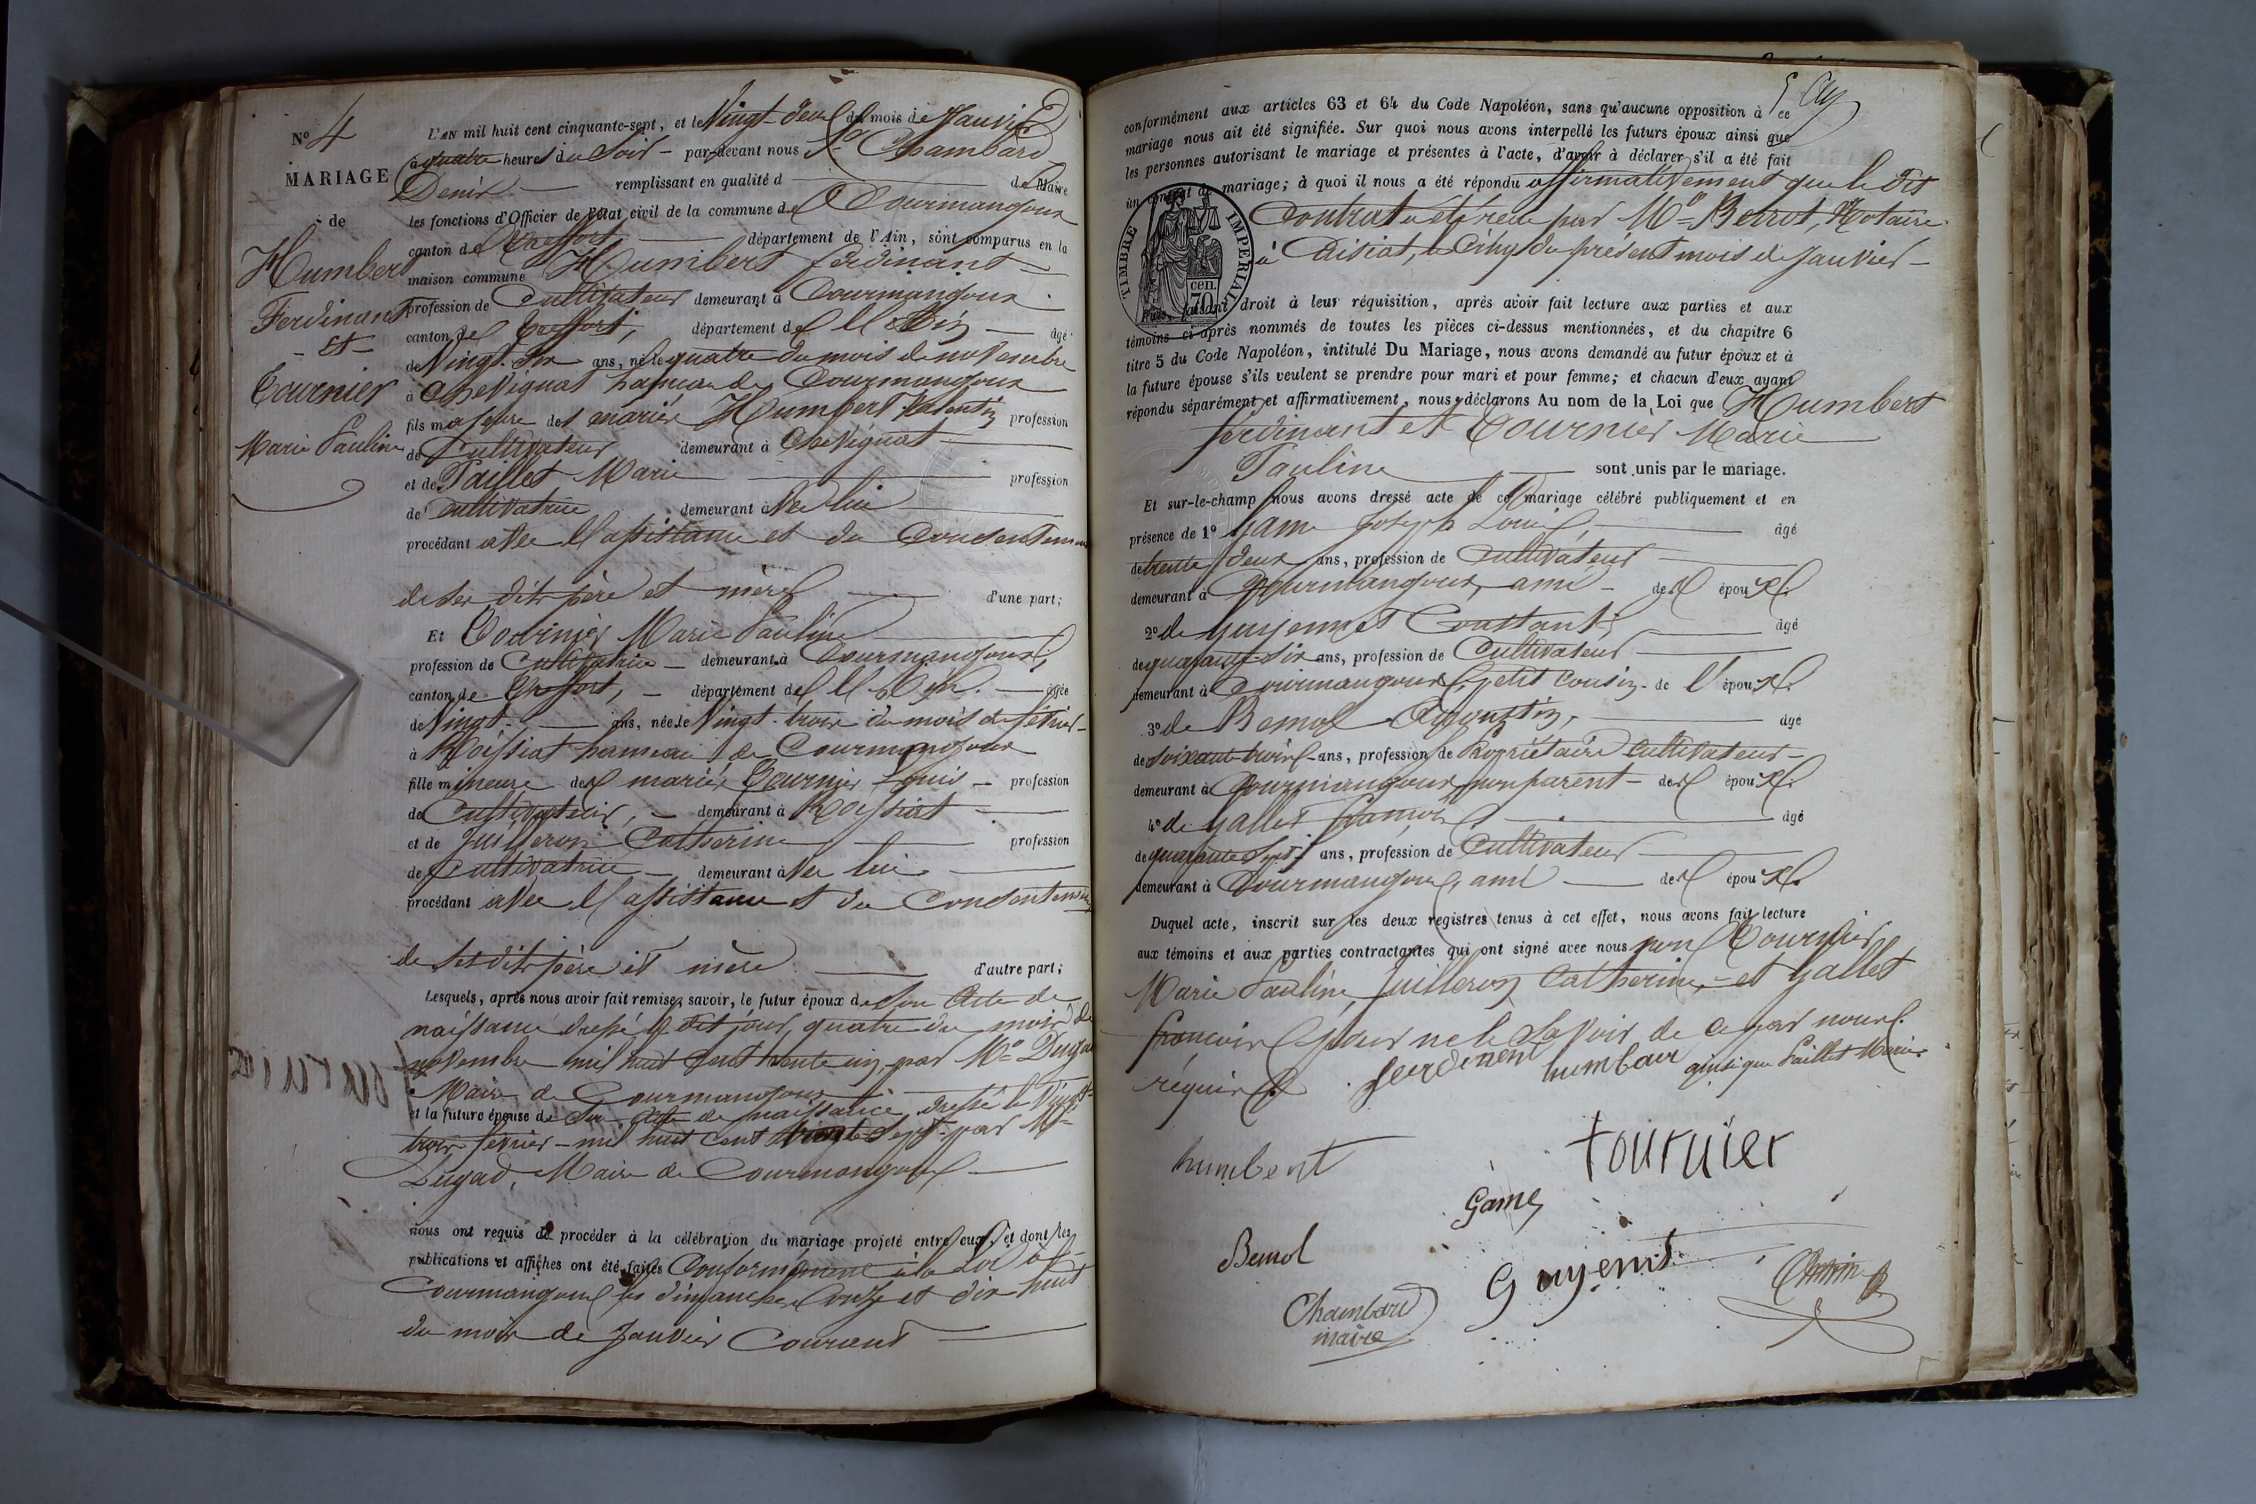 No 4
MARIAGE
de
Humbert
Ferdinant
- et -
Tournier
Marie Pauline
L'AN mil huit cent cinquante-sept, et le Vingt-deux du mois de Janvier
à quatre heures du soir - par-devant nous Chambard
Denis remplissant en qualité d de Maire
les fonctions d'Officier de l'état civil de la commune de Courmangoux
canton de Treffort département de l'Ain, sont comparus en la
maison commune Humbert ferdinant
profession de Cultivateur demeurant à Courmangoux
canton de Treffort, département de l'Ain âgé
de Vingt-six ans, né le quatre du mois de novembre
à Chevignat hameau de Courmangoux
fils majeure des mariés Humbert Valentin profession
de Cultivateur demeurant à Chevignat
et de Paillet Marie profession
de cultivatrice demeurant à Avec lui
procédant avec l'assistance et du Consentement
de ses dits père et mère d'une part;
Et Tournier Marie Pauline
profession de Cultivatrice demeurant à Courmangoux,
canton de Treffort, département de l'Ain. âgée
de Vingt- ans, née le Vingt-trois du mois de février
à Roissiat hameau de Courmangoux
fille mineure des mariés Tournier Louis profession
de Cultivateur, demeurant à Roissiat
et de Juilleron Catherine profession
de Cultivatrice demeurant à Avec lui
procédant avec l'assistance et du Consentement
de ses dits père et mère d'autre part;
Lesquels, après nous avoir fait remise, savoir, le futur époux de Son Acte de
naissance dressé le dit jour, quatre du mois de
novembre mil huit cent trente un par Mr Dugad
Maire de Courmangoux
et la future épouse de Son Acte de naissance, dressé le Vingt-
trois février mil huit cent trente Sept par Mr
Dugad, Maire de Courmangoux
nous ont requis de procéder à la célébration du mariage projeté entre eux, et dont les
publications et affiches ont été faites Conformément à la Loi à
Courmangoux les dimanches onze et dix huit
du mois de Janvier Courant
conformément aux articles 63 et 64 du Code Napoléon, sans qu'aucune opposition à ce
mariage nous ait été signifiée. Sur quoi nous avons interpellé les futurs époux ainsi que
les personnes autorisant le mariage et présentes à l'acte, d'avoir à déclarer s'il a été fait
un contrat de mariage; à quoi il nous a été répondu affirmativement que le dit
Contrat a été reçu par Me Berrot, Notaire
à Cuisiat, le Cinq du présent mois de Janvier
TIMBRE IMPERIAL
70 cen.
faisant droit à leur réquisition, après avoir fait lecture aux parties et aux
témoins ci-après nommés de toutes les pièces ci-dessus mentionnées, et du chapitre 6
titre 5 du Code Napoléon, intitulé Du Mariage, nous avons demandé au futur époux et à
la future épouse s'ils veulent se prendre pour mari et pour femme; et chacun d'eux ayant
répondu séparément et affirmativement, nous déclarons Au nom de la Loi que Humbert
ferdinant et Tournier Marie
Pauline sont unis par le mariage.
Et sur-le-champ nous avons dressé acte de ce mariage célébré publiquement et en
présence de 1° Game Joseph Louis, âgé
de trente deux ans, profession de Cultivateur
demeurant à Courmangoux, ami des époux.
2° de Guyennet Constant, âgé
de quarante-six ans, profession de Cultivateur
demeurant à Courmangoux, petit cousin de l'époux.
3° de Bemol Augustin, âgé
de soixante trois ans, profession de Propriétaire Cultivateur
demeurant à Courmangoux, non parent des époux.
4° de Gallet françois âgé
de quarante Sept ans, profession de Cultivateur
demeurant à Courmangoux, ami des époux.
Duquel acte, inscrit sur les deux registres tenus à cet effet, nous avons fait lecture
aux témoins et aux parties contractantes qui ont signé avec nous non Tournier
Marie Pauline, Juilleron Catherine, et Gallet
françois pour ne le Savoir de ce par nous
requis. feerdinent humbair ainsi que Paillet Marie
humbert
tournier
Game
Bemol
Guyenit
Chambard
maire